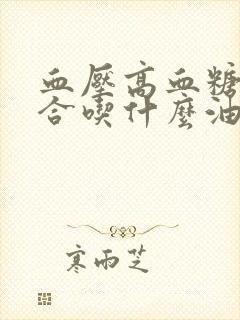 血壓高血糖
合喫什麼油
寒雨芝